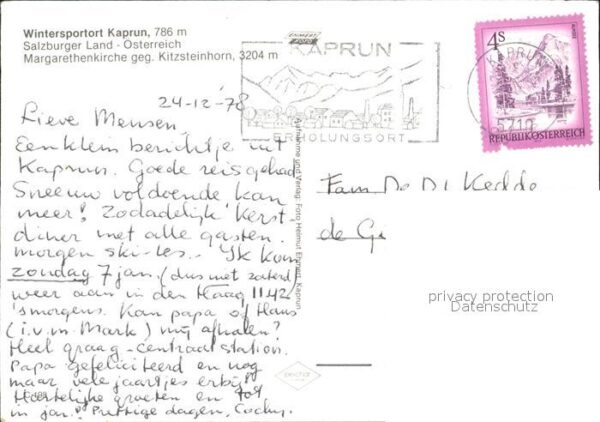 Wintersportort Kaprun, 786 m
Salzburger Land - Österreich
Margarethenkirche geg. Kitzsteinhorn, 3204 m
KAPRUN
ERHOLUNGSORT
4S
KAPRUN
5710
REPUBLIK ÖSTERREICH
24-12-78
Lieve Mensen,
Een klein berichtje uit
Kaprun. Goede reis gehad
Sneeuw voldoende kan
meer! Zodadelijk Kerst
diner met alle gasten.
morgen ski-les. Ik kom
zondag 7 jan. (dus niet zaterd)
weer aan in den Haag 11.42
's morgens. Kan papa of Hans
(i.v.m. Mark) mij afhalen?
Heel graag - centraal station.
Papa gefeliciteerd en nog
maar vele jaartjes erbij!
Hartelijke groeten en tot
in jan.! Prettige dagen,
Aufnahme und Verlag: Foto Helmut Kaprun
Fam. De
de Ge
privacy protection
Datenschutz